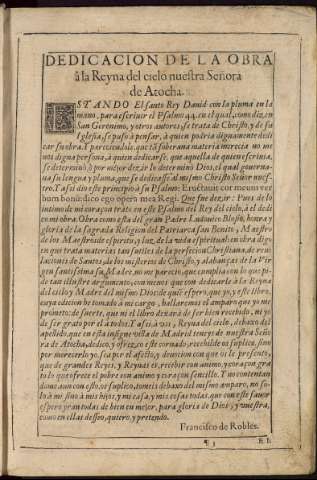 DEDICACION DE LA OBRA
à la Reyna del cielo nuestra Señora
de Atocha.
ESTANDO El santo Rey Dauid con la pluma en la
mano, para escriuir el Psalmo 44. en el qual, como dizen
San Geronimo, y otros autores, se trata de Christo, y de su
Iglesia, se puso à pensar, à quien podria dignamente dedi
car su obra. Y pareciendole, que tã soberana materia merecia no me
nos digna persona, à quien dedicarse, que aquella de quien escriuia,
se determinò, ò por mejor dezir lo determinò Dios, el qual gouerna
ua su lengua y pluma, que se dedicasse al mismo Christo Señor nues-
tro. Y assi dio este principio à su Psalmo: Eructauit cor meum ver
bum bonum dico ego opera mea Regi. Que fue dezir: Pues de lo
intimo de mi coraçon trato en este Psalmo del Rey del cielo, à el dedi
co mi obra. Obra como esta del gran Padre Ludouico Blosio, honra y
gloria de la sagrada Religion del Patriarca san Benito, Maestro
de los Maestros de espiritu, y luz de la vida espiritual: en obra digo
en que trata materias tan sutiles de la perfeccion Christiana, de reue
laciones de Santos, de los misterios de Christo, y alabanças de la Vir
gen santissima su Madre, no me parecio, que cumplia con lo que pi-
de tan illustre argumento, con menos que con dedicarle à la Reyna
del cielo y Madre del mismo Dios: de quiẽ espero, que yo, y este libro,
cuya edicion he tomado à mi cargo, hallaremos el amparo que yo me
prometo: de suerte, que ni el libro dexarà de ser bien recebido, ni yo
de ser grato por el à todos. Y assi à vos, Reyna del cielo, debaxo del
apellido, que en esta insigne villa de Madrid teneys de nuestra Seño
ra de Atocha, dedico, y ofrezco este cornado, recebilde os suplico, sino
por merecerlo yo, sea por el afecto, y deuocion con que os le presento,
que de grandes Reyes, y Reynas es, recebir con animo, y coraçon gra
to lo que ofrece el pobre con animo y coraçon sencillo. Y no contentan
dome aun con esto, os suplico, tomeis debaxo del mismo amparo, no so-
lo à mi sino à mis hijos, y mi casa, y mis cosas todas, que con este fauor
espero yran todas de bien en mejor, para gloria de Dios, y vuestra,
como en ellas desseo, quiero, y pretendo.
Francisco de Robles.
¶ 3
EL